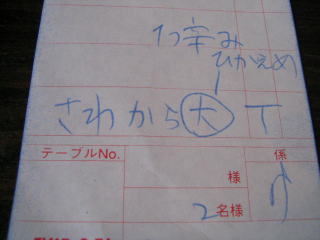 辛み
ひかえめ
さわから 大 T
テーブルNo.
係
様
2名様